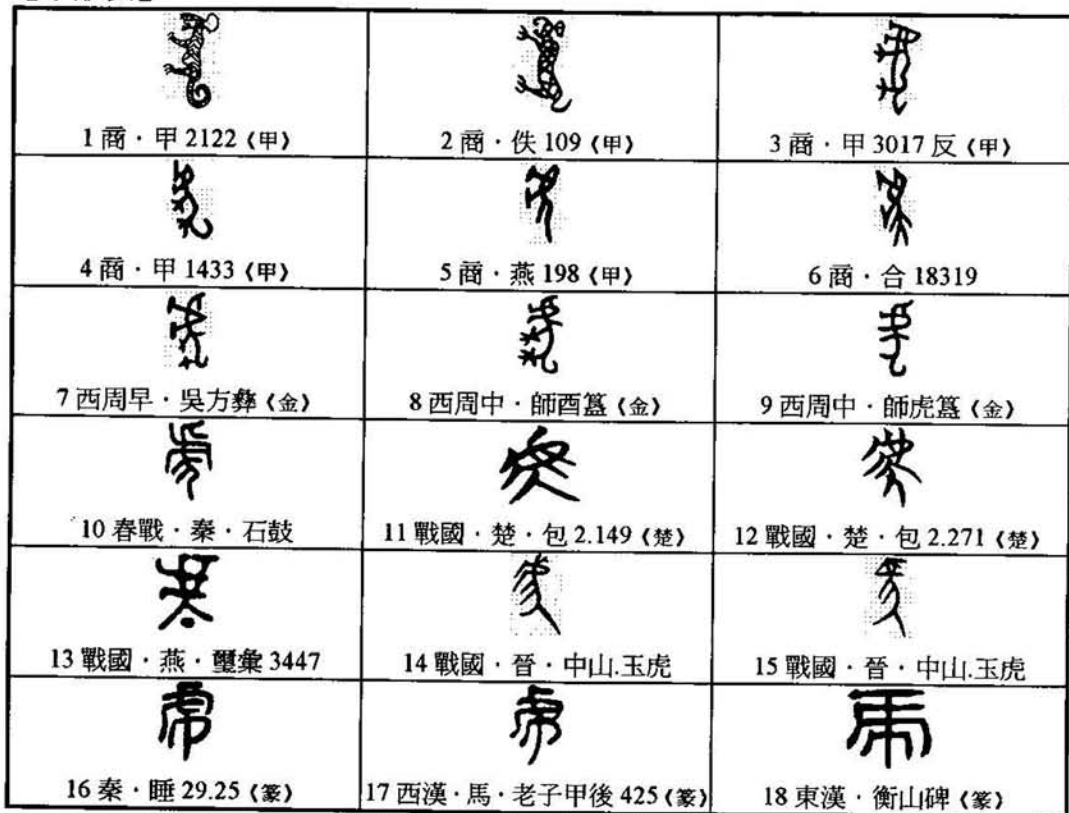 1 商・甲 2122《甲》
2 商・佚 109《甲》
3 商・甲 3017 反《甲》
4 商・甲 1433《甲》
5 商・燕 198《甲》
6 商・合 18319
7 西周早・吳方彝《金》
8 西周中・師酉簋《金》
9 西周中・師虎簋《金》
10 春戰・秦・石鼓
11 戰國・楚・包 2.149《楚》
12 戰國・楚・包 2.271《楚》
13 戰國・燕・璽彙 3447
14 戰國・晉・中山.玉虎
15 戰國・晉・中山.玉虎
16 秦・睡 29.25《篆》
17 西漢・馬・老子甲後 425《篆》
18 東漢・衡山碑《篆》